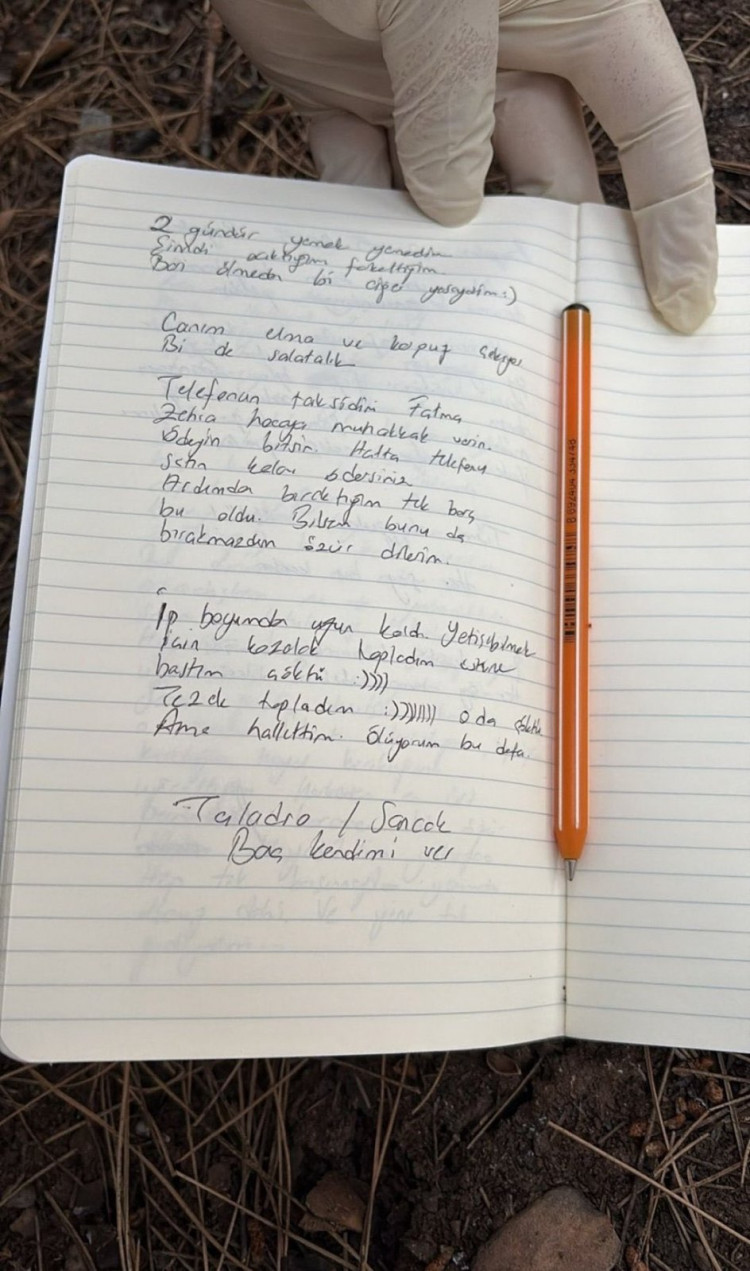 2 gündür yemek yemedim
Şimdi acıktığım farkettim
Ben ölmeden bi ciğer yeseydim :)
Canım elma ve karpuz çekiyor
Bi de salatalık
Telefonun taksidini Fatma
Zehra hocaya muhakkak verin.
Ödeyin bitsin. Hatta telefonu
satın kalanı ödersiniz
Ardımda bıraktığım tek borç
bu oldu. Bilsem bunu da
bırakmazdım özür dilerim.
İp boyumdan uzun kaldı. Yetişebilmek
için kozalak topladım üstüne
bastım çöktü :))))
Tezek topladım :)))))))) o da çöktü
Ama hallettim. Ölüyorum bu defa.
Taladro / Sancak
Baş kendimi ver
8 692404 334748